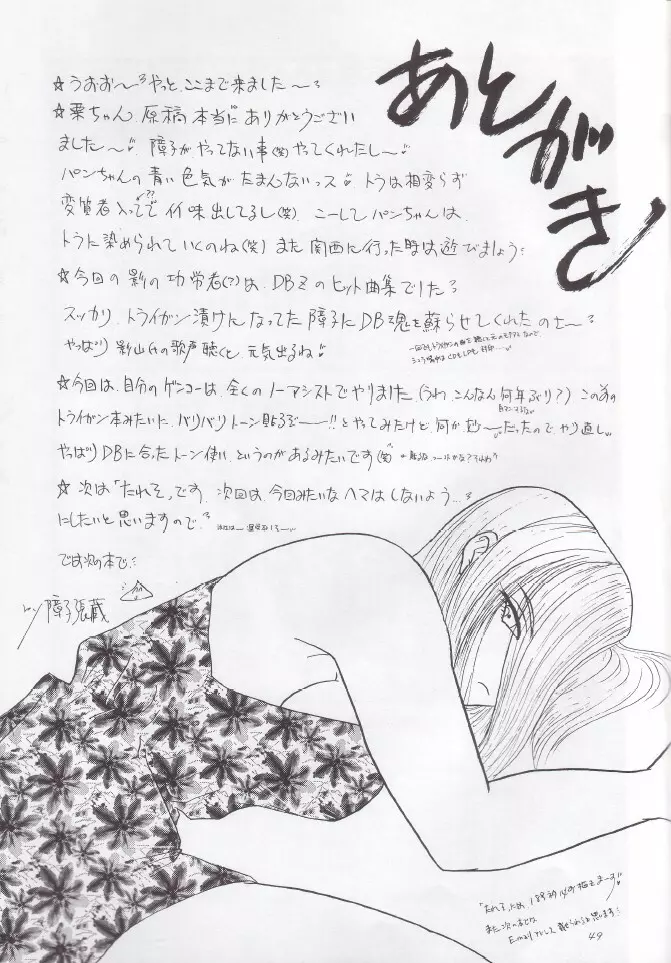 あとがき
☆うおお〜っやっと、ここまで来ました〜っ
☆栗ちゃん、原稿本当にありがとうござい
ました〜♡ 障子がやってない事(笑)やってくれたし〜♡
パンちゃんの青い色気がたまんないっス♡ トラは相変らず
変質者入っててイイ味出してるし(笑) こーしてパンちゃんは、
トラに染められていくのね(笑) また関西に行った時は遊びましょう
☆今回の影の功労者(?)は、DBZのヒット曲集でした
スッカリ、トライガン漬けになってた障子にDB魂を蘇らせてくれたのさ〜
やっぱり影山氏の歌声聴くと、元気出るね♡
☆今回は、自分のゲンコーは、全くのノーアシストでやりました(うわ、こんなん何年ぶり?) この前の
トライガン本みたいに、バリバリトーン貼るぞーー!!とやってみたけど、何か妙〜だったので、やり直し
やっぱりDBに合ったトーン使い、というのがあるみたいです(笑)
☆次は「たれそ」です、次回は、今回みたいなヘマはしないよう…
にしたいと思いますので
では次の本で
障子張蔵
また次のあとがき
49